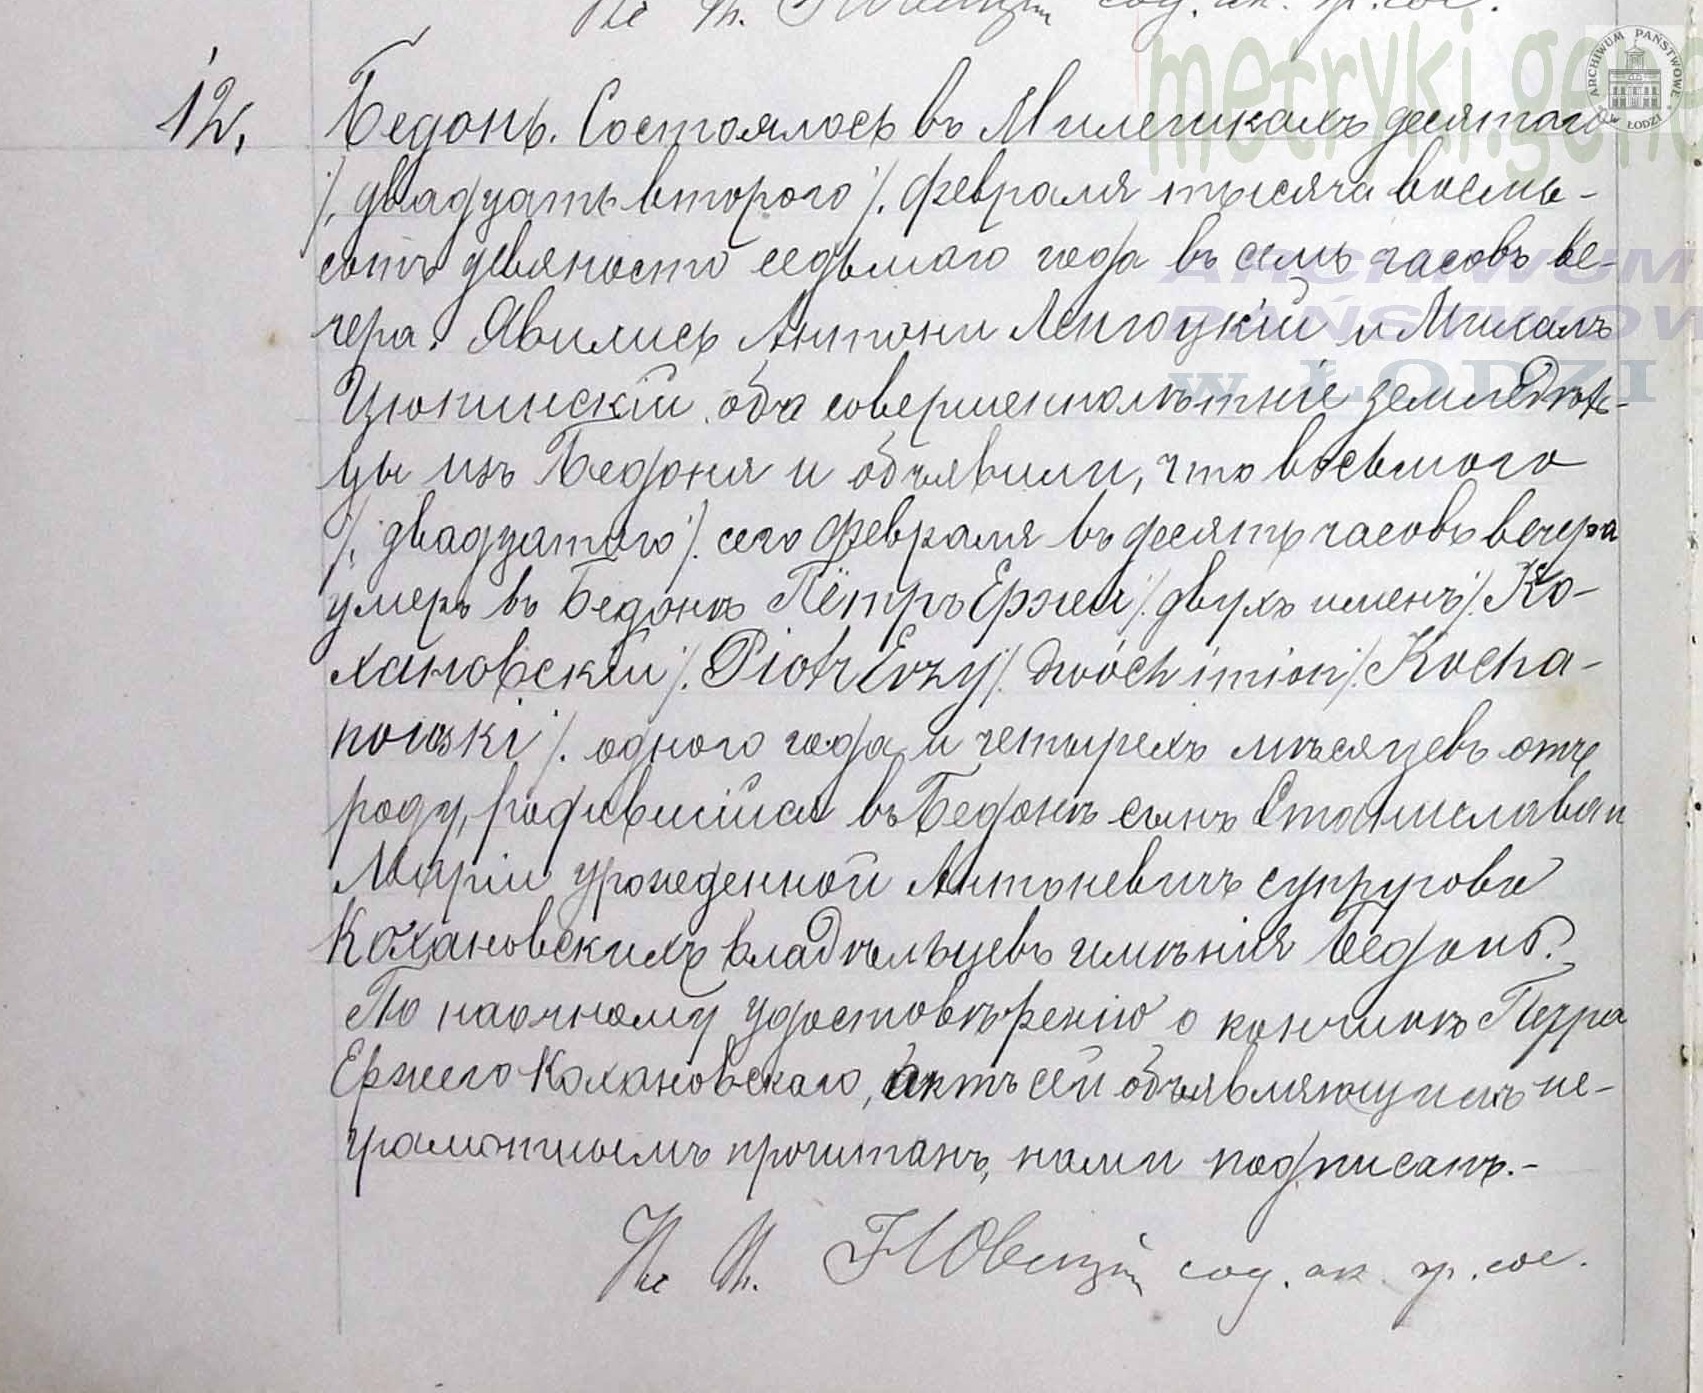 12.
Бедонь. Состоялось въ Милешкахъ десятаго
/двадцать второго/ февраля тысяча восемь-
сотъ девяносто седьмаго года въ семь часовъ ве-
чера. Явились Антони и Михалъ
обa совершеннолѣтніе земледѣль-
цы изъ Бедоня и объявили, что восьмого
/двадцатого/ сего февраля въ десять часовъ вечера
умеръ въ Бедонѣ Пётръ Ержи /двухъ именъ/ Ко-
хановскій /Piotr Erzy /dwóch imion/ Kocha-
nowski/. одного года и четырехъ мѣсяцевъ отъ
роду, родившійся въ Бедонѣ сынъ Станислава и
Маріи урожденной Антоневичъ супруговъ
Кохановскихъ владѣльцевъ имѣнія Бедонь.
По наочному удостовѣренію о кончинѣ Петра
Ержего Кохановскаго, актъ сей объявляющимъ не-
грамотнымъ прочитанъ, нами подписанъ.-
сод. ак. гр. сос.
metryki.gene
ARCHIWUM PAŃSTWOWE W ŁODZI
ARCHIWUM
PAŃSTWOW
w ŁODZI